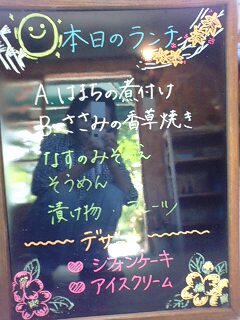 本日のランチ
A. はまちの煮付け
B. ささみの香草焼き
なすのみそ
そうめん
漬け物
デザ
シフォンケーキ
アイスクリーム